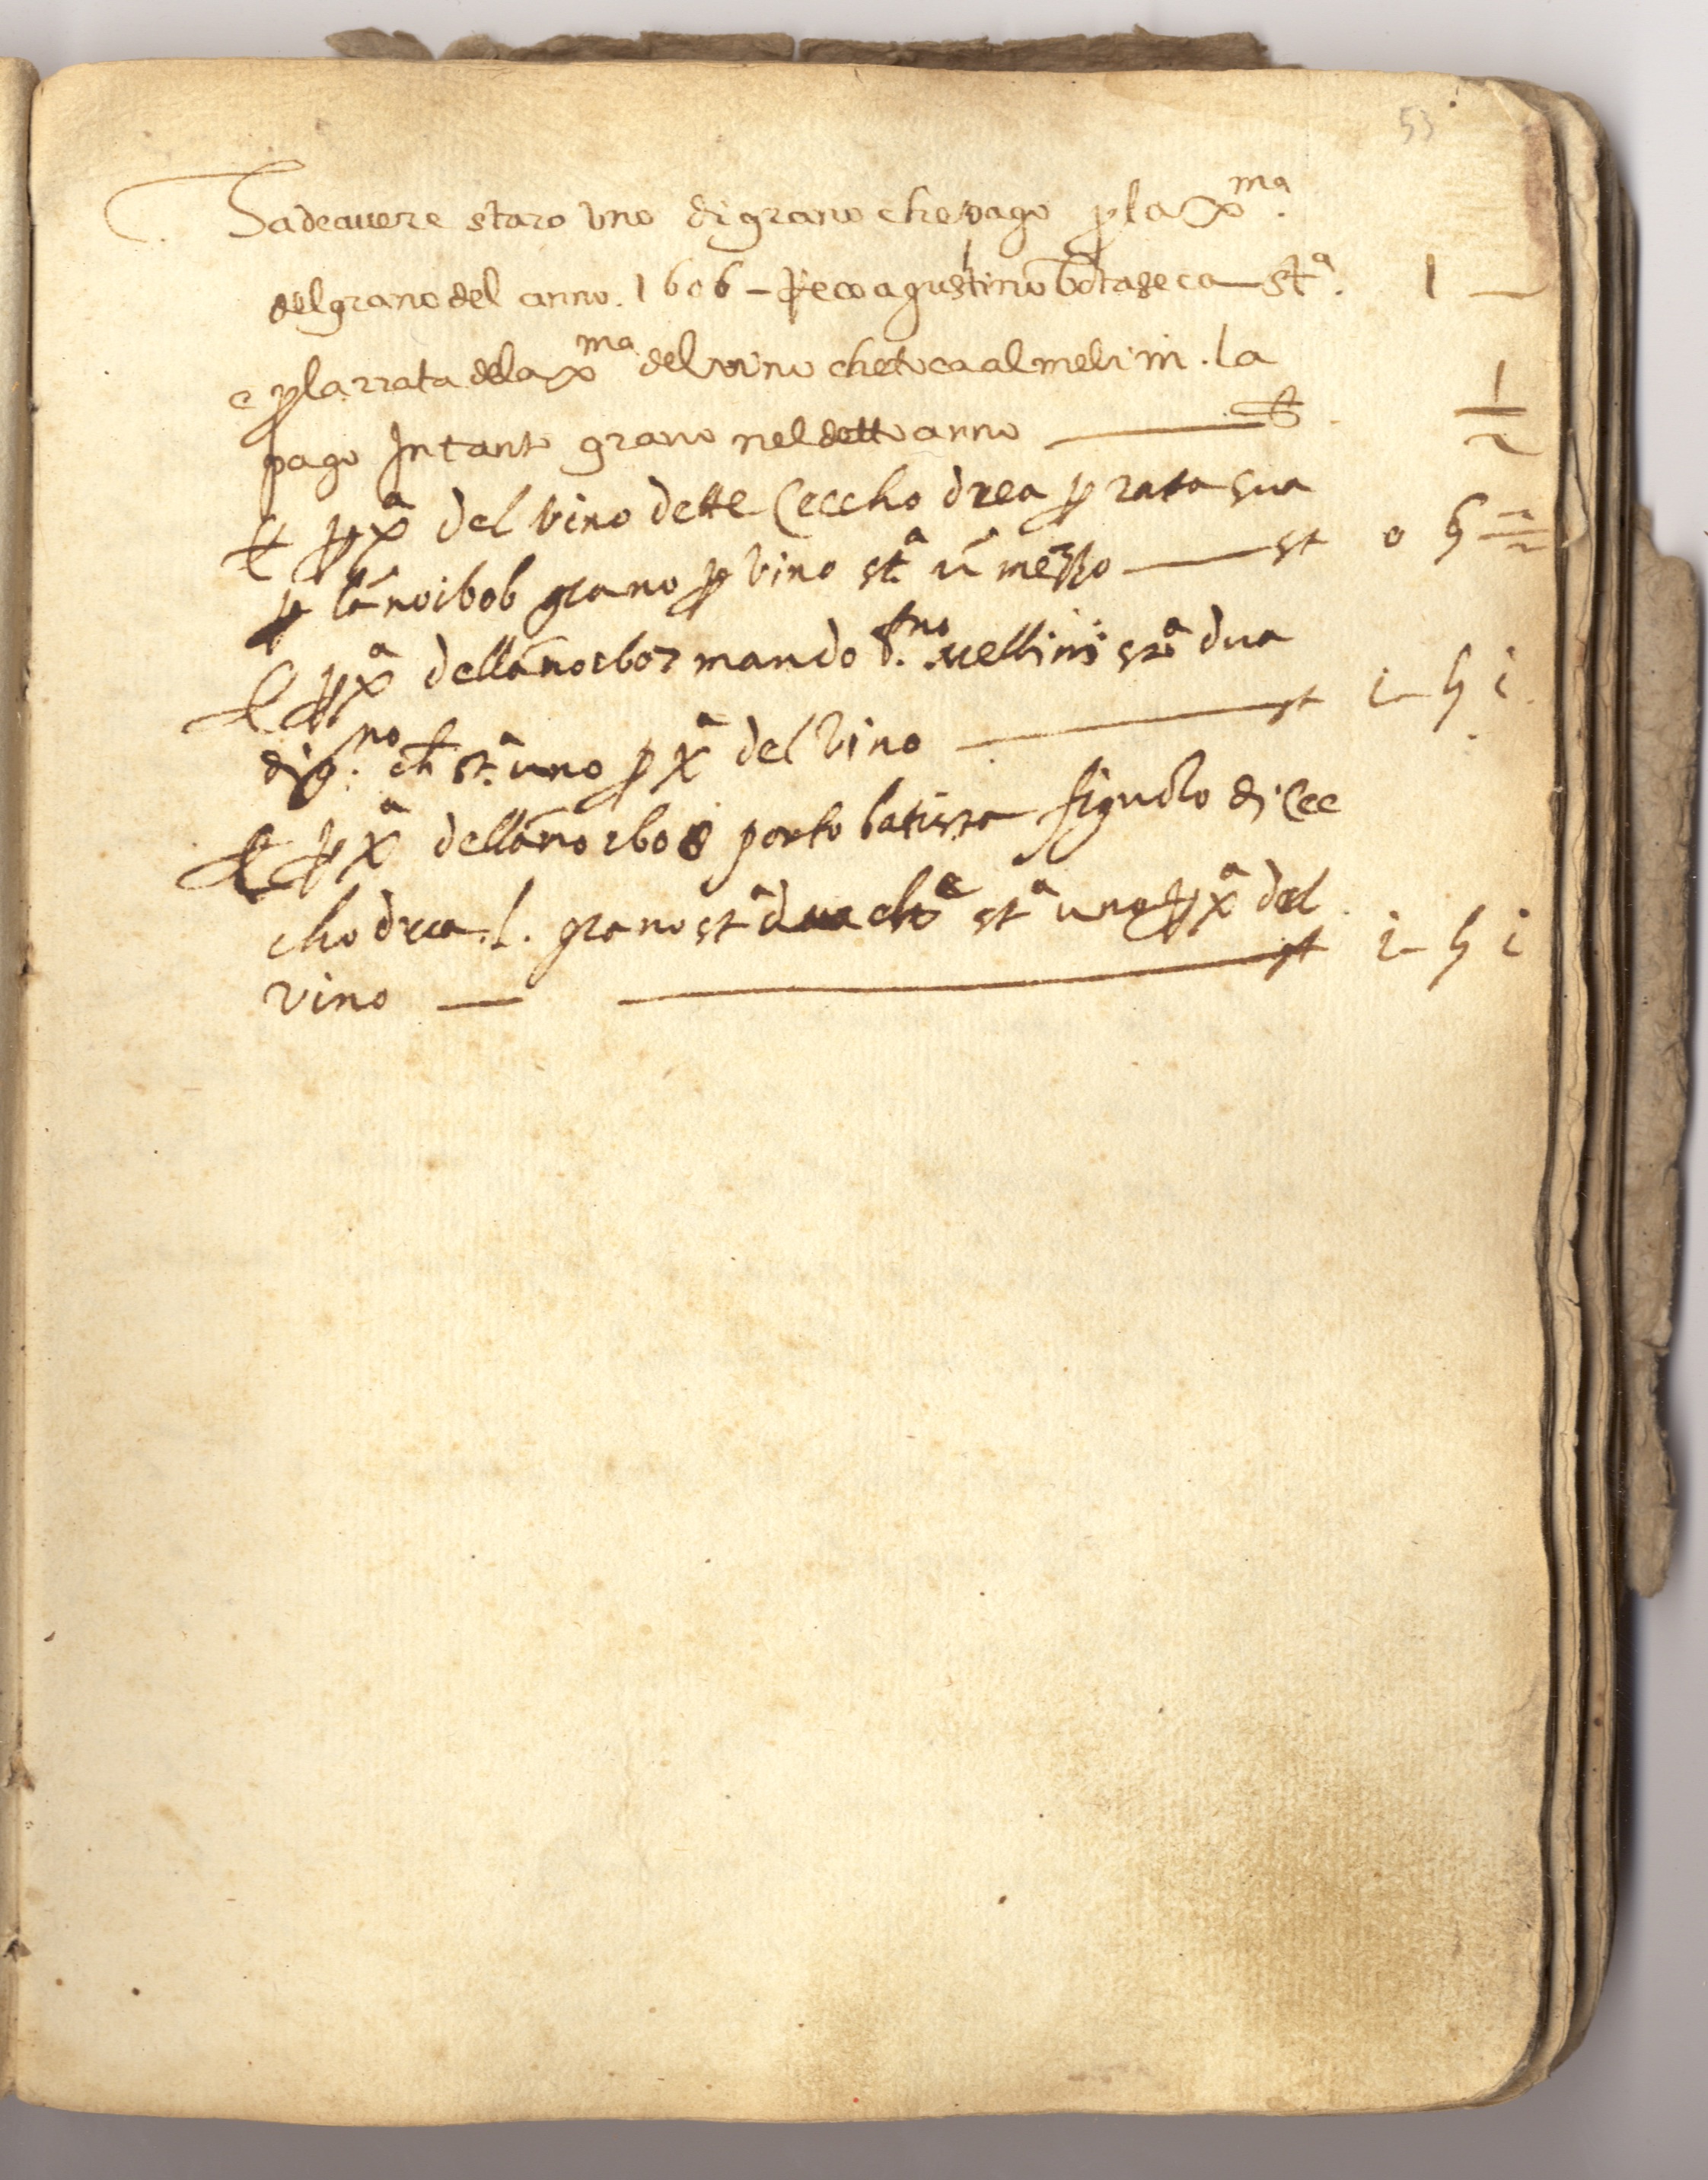 53
Sa de avere staro uno di grano che pago p la x^ma.
del grano del anno. 1606 - Reco agustino botaseca - st^a. 1 —
e p la rrata dela x^ma del vino che toca al melini . la
pago In tanto grano nel detto anno — 1/2
E p x^a del vino dette Ceccho drea p rata sua
p lãno 1606 grano p vino st^a ũ mezzo — st 0 1/2
E p x^a dellãno 1607 mando mellini st^a dua
di g.^no ch st.^a uno p x^a del vino — st i — i
E p x^a dellãno 1608 porto batista figuolo di Cec
cho drea . l . grano st^a dua st^a uno p x^a del
vino — — st i — i